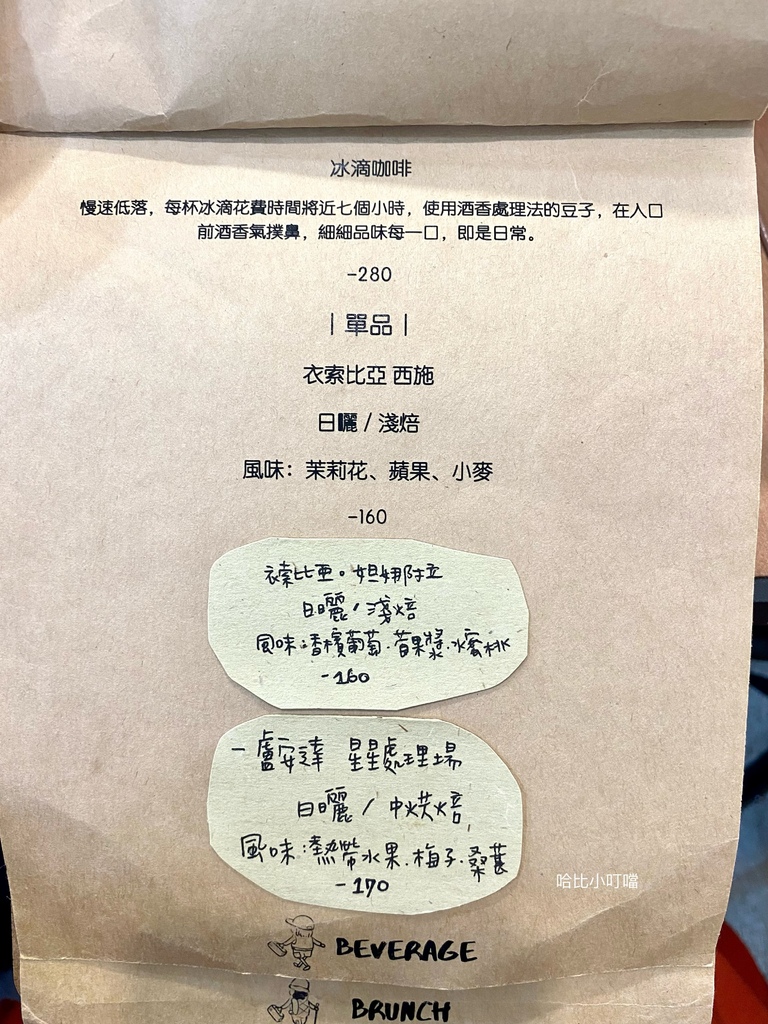 冰滴咖啡
慢速低落，每杯冰滴花費時間將近七個小時，使用酒香處理法的豆子，在入口
前酒香氣撲鼻，細細品味每一口，即是日常。
-280
｜單品｜
衣索比亞 西施
日曬 / 淺焙
風味：茉莉花、蘋果、小麥
-160
衣索比亞。妲娜那拉
日曬 / 淺焙
風味:香檳葡萄.莓果漿.水蜜桃
-160
-盧安達 星星處理場
日曬 / 中烘焙
風味:熱帶水果.梅子.桑葚
-170
哈比小叮噹
BEVERAGE
BRUNCH